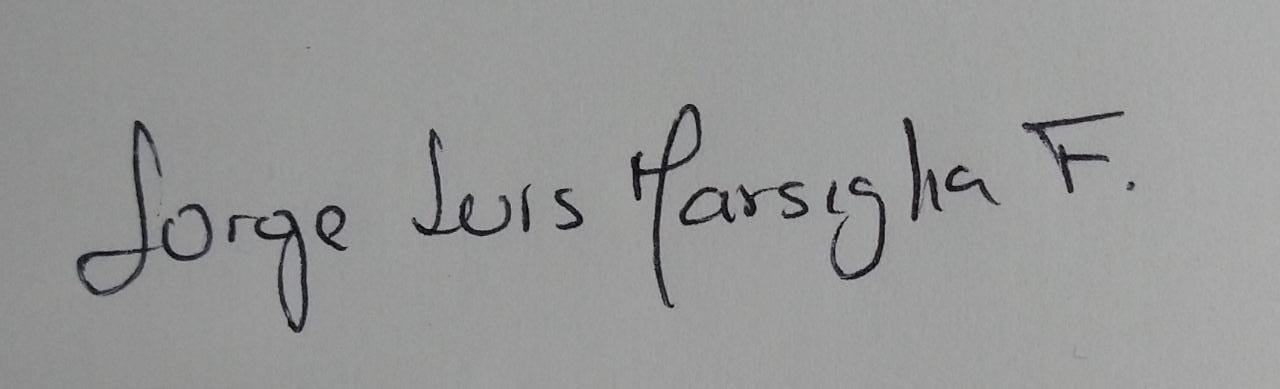 Jorge Luis Marsiglia F.